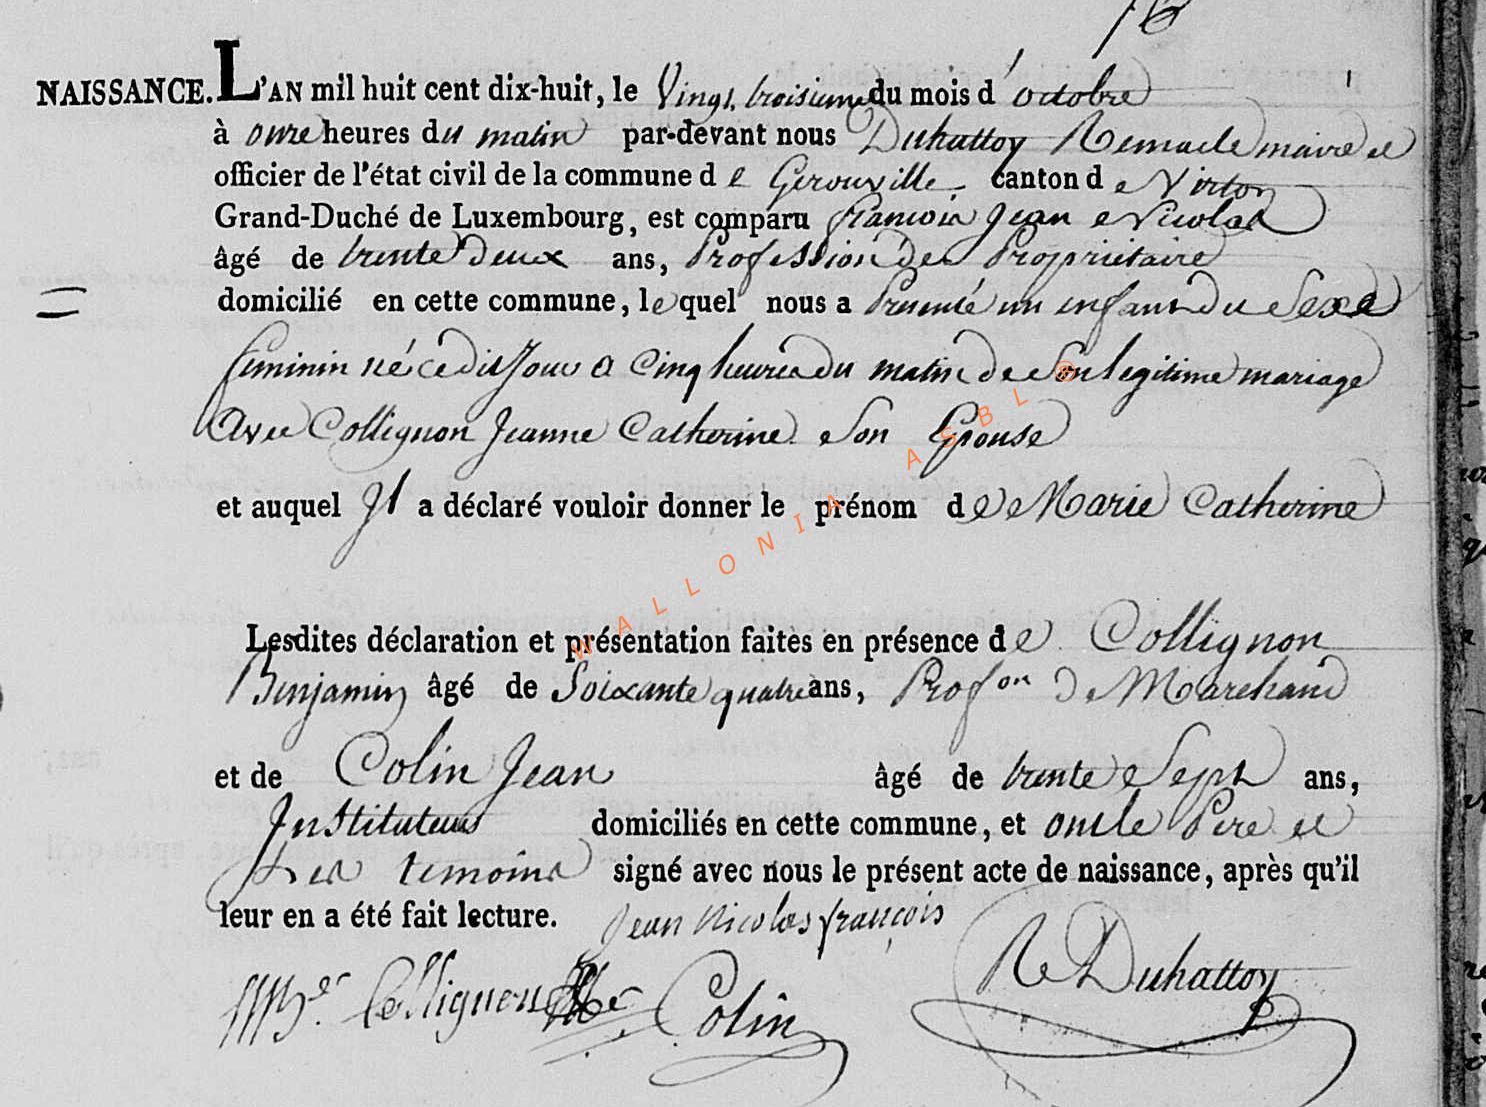 NAISSANCE. L'AN mil huit cent dix-huit, le Vingt troisieme du mois d'octobre
à onze heures du matin par-devant nous Duhattoy Remacle maire et
officier de l'état civil de la commune de Gerouville canton de Virton
Grand-Duché de Luxembourg, est comparu francois Jean Nicolas
âgé de trente deux ans, Profession de Propriétaire
domicilié en cette commune, lequel nous a Presenté un enfant du Sexe
feminin né cedit Jour a Cinq heures du matin de Son legitime mariage
Avec Collignon Jeanne Catherine Son Epouse
et auquel Il a déclaré vouloir donner le prénom de Marie Catherine
Lesdites déclaration et présentation faites en présence de Collignon
Benjamin âgé de Soixante quatre ans, Profon De Marchand
et de Colin Jean âgé de trente Sept ans,
Instituteur domiciliés en cette commune, et ont le Pere et
Les temoins signé avec nous le présent acte de naissance, après qu'il
leur en a été fait lecture. Jean Nicolas françois
Collignon Colin R Duhattoy
WALLONIA ASBL ®